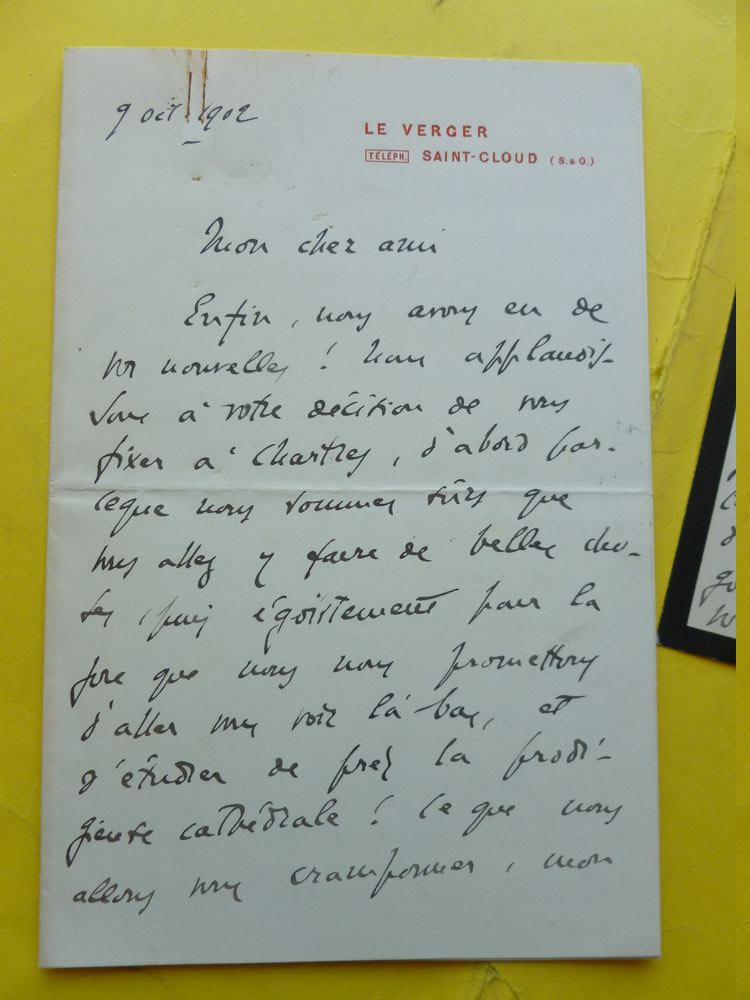 9 oct 1902
LE VERGER
TÉLÉPH. SAINT-CLOUD (S.&O.)
Mon cher ami
Enfin, nous avons eu de
vos nouvelles ! Nous applaudis-
sons à votre décision de vous
fixer à Chartres, d'abord par-
ceque nous sommes sûrs que
vous allez y faire de belles cho-
ses, puis égoïstement pour la
joie que nous nous promettons
d'aller vous voir là-bas, et
d'étudier de près la prodi-
gieuse cathédrale ! Ce que nous
allons vous cramponner, mon